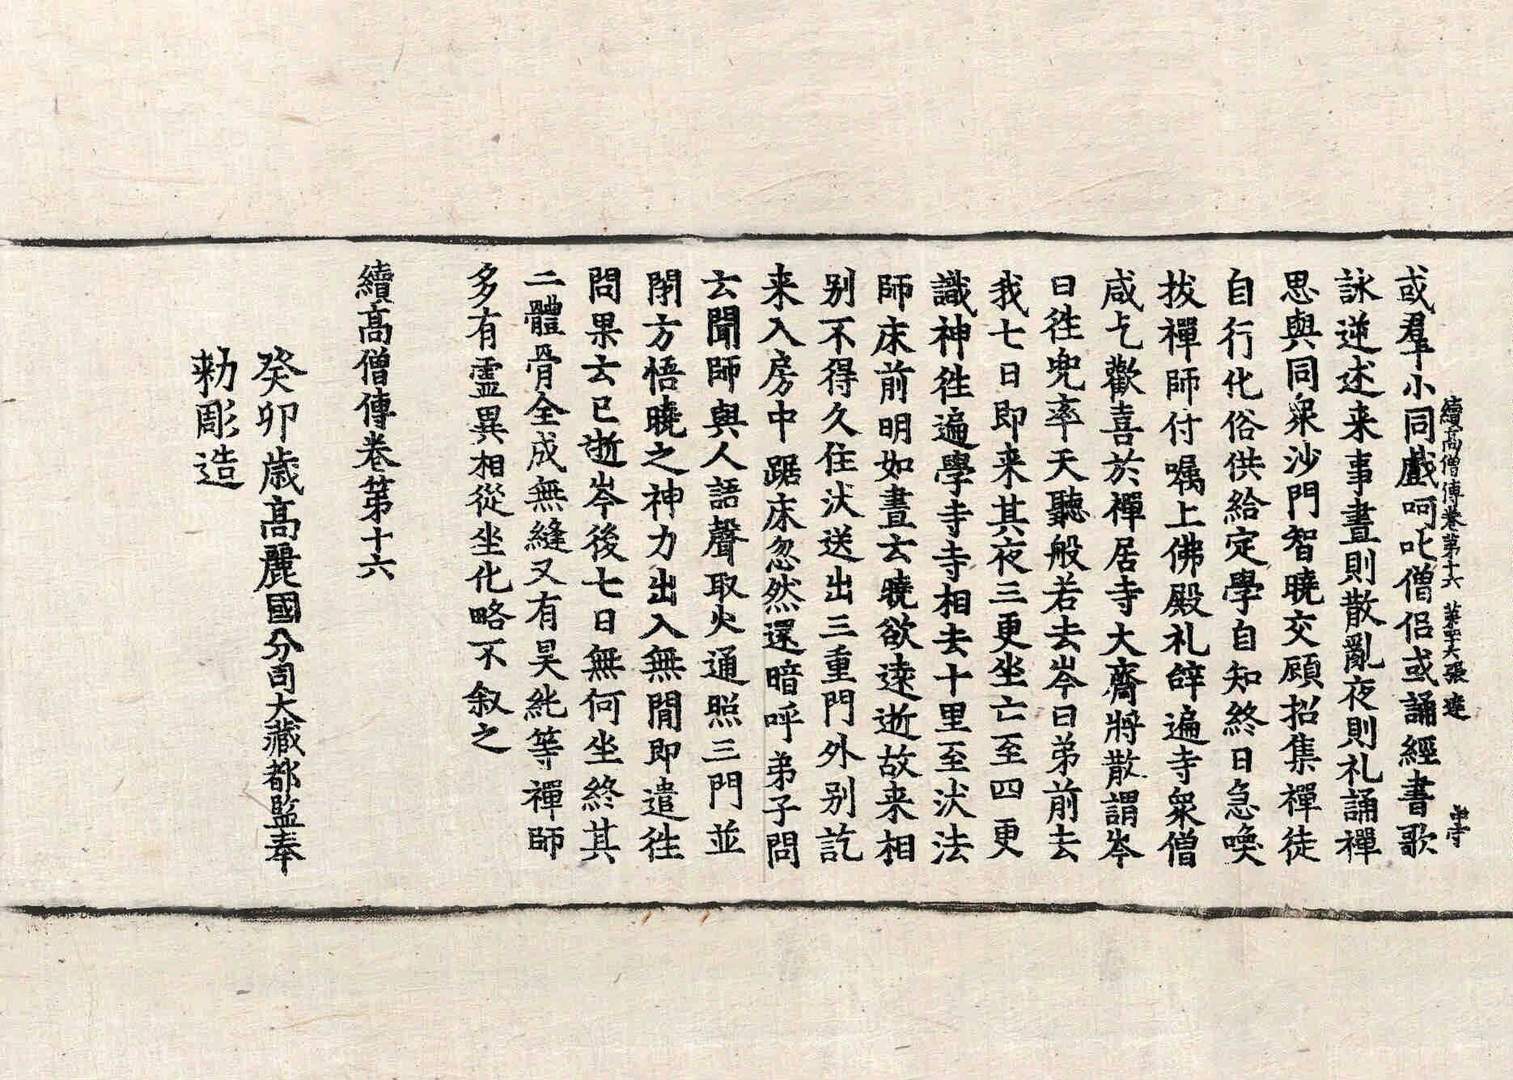 續高僧傳卷第十六 第四十六張 達
或羣小同戲呵叱僧侣或誦經書歌
詠逆述来事晝則散亂夜則礼誦禪
思與同衆沙門智曉交顧招集禪徒
自行化俗供給定學自知終日急喚
拔禪師付囑上佛殿礼辤遍寺衆僧
咸乞歡喜於禪居寺大齋將散謂岑
曰徃兜率天聽般若去岑曰弟前去
我七日即来其夜三更坐亡至四更
識神徃遍學寺寺相去十里至汱法
師床前明如晝去曉欲遠逝故来相
别不得久住汱送出三重門外别訖
来入房中踞床忽然還暗呼弟子問
云聞師與人語聲取火通照三門並
閇方悟曉之神力出入無閒即遣徃
問果云已逝岑後七日無何坐終其
二體骨全成無縫又有昊純等禪師
多有靈異相從坐化略不叙之
續高僧傳卷第十六
癸卯歲高麗國分司大藏都監奉
勑彫造